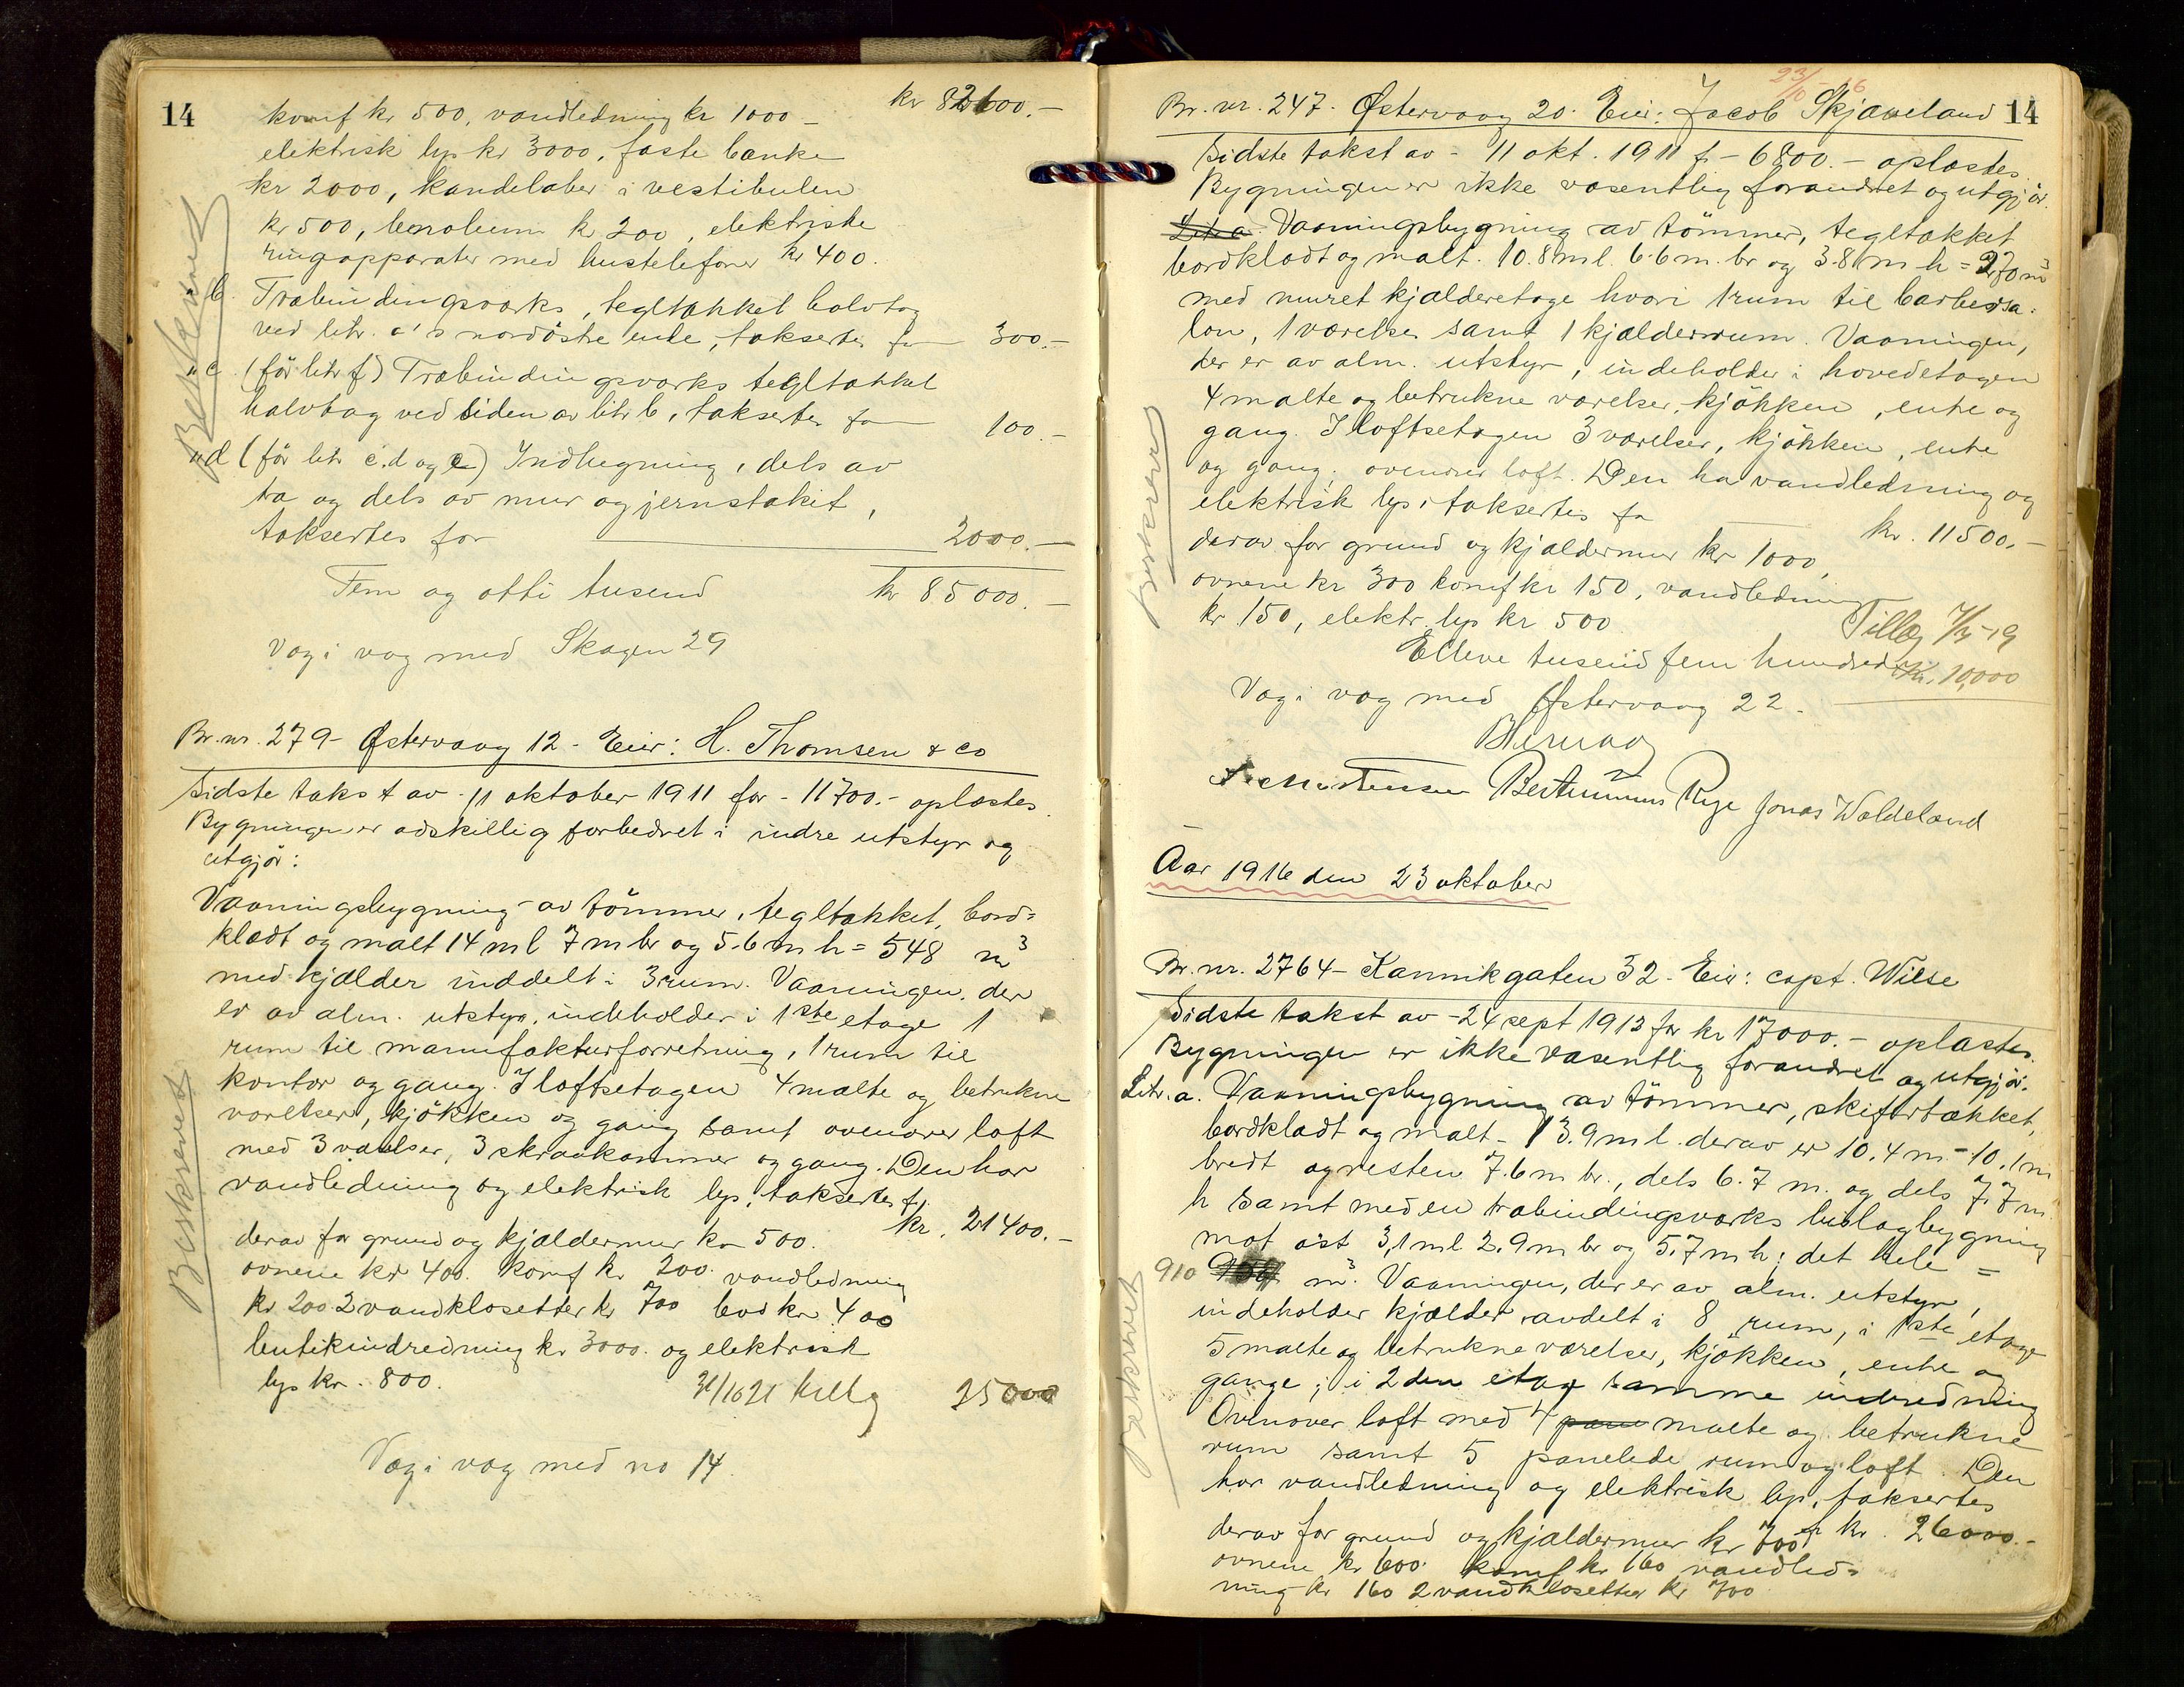 14
komf kr 500, vandledning kr 1000 – kr 82600.–
elektrisk lys kr 3000, faste bænke
kr 2000, kandelaber i vestibulen
kr 500, lenoleum kr 200, elektriske
ringapparater med hustelefoner kr 400.
" b. Træbindingsværks, tegltækket halvtag
ved litr. a's nordöstre ende, taksertes for 300.–
" c. (för litr f) Træbindingsværks tegltækket
halvtag ved siden av litr b, taksertes for 100.–
" d (för litr c.d og e) Indhegning, dels av
træ og dels av mur og jernstakit,
taksertes for 2000.–
Fem og otti tusend kr 85000.–
Væg i væg med Skagen 29
Beskrevet
Br. nr. 279 – Østervaag 12 – Eier: H. Thomsen & co
Sidste takst av 11 oktober 1911 for – 11700.– oplæstes.
Bygningen er adskillig forbedret i indre utstyr og
utgjör:
Vaaningsbygning av tömmer, tegltækket, bord=
klædt og malt 14 m l 7 m br og 5.6 m h = 548 m3
med kjælder inddelt i 3 rum. Vaaningen, der
er av alm. utstyr, indeholder i 1ste etage 1
rum til manufakturforretning, 1 rum til
kontor og gang. I loftsetagen 4 malte og betrukne
værelser, kjökken og gang samt ovenover loft
med 3 værelser, 3 skraakammer og gang. Den har
vandledning og elektrisk lys, taksertes for
kr. 21400.–
derav for grund og kjældermur kr 500.
ovnene kr 400. komf kr 200. vandledning
kr 200 2 vandklosetter kr 700 bod kr 400
butikindredning kr 3000. og elektrisk
lys kr. 800. 31/10 21 tillæg 25000
Væg i væg med no 14.
Beskrevet
23/10 – 16
14
Br. nr. 247. Østervaag 20. Eier: Jacob Skjæveland
Sidste takst av – 11 okt. 1911 f – 6800.– oplæstes.
Bygningen er ikke væsentlig forandret og utgjör.
Litr a. Vaaningsbygning av tömmer, tegltækket
bordklædt og malt. 10.8 m l. 6.6 m. br og 3.8 m h = 270 m3
med muret kjælderetage hvori 1 rum til barbersa=
lon, 1 værelse samt 1 kjælderrum. Vaaningen,
der er av alm. utstyr, indeholder i hovedetagen
4 malte og betrukne værelser, kjökken, entre og
gang. I loftsetagen 3 værelser, kjökken, entre
og gang; ovenover loft. Den har vandledning og
elektrisk lys, taksertes for kr. 11500.–
derav for grund og kjældermur kr 1000,
ovnene kr 300 komf kr 150, vandledning
kr 150, elektr. lys kr 500
Tillæg 7/3 – 19
Elleve tusend fem hundrede Kr. 10,000
Væg i væg med Østervaag 22.
Beskrevet
Berentsen Rege Jonas Woldeland
Aar 1916 den 23 oktober
Br. nr. 2764 – Kannikgaten 32 – Eier: capt. Wiese
Sidste takst av – 24 sept 1913 for kr 17000.– oplæstes.
Bygningen er ikke væsentlig forandret og utgjör.
Litr. a. Vaaningsbygning av tömmer, skifertækket,
bordklædt og malt – 13.9 m l. derav er 10.4 m – 10.1 m
bredt og resten 7.6 m br., dels 6.7 m. og dels 7.7 m
h samt med en træbindingsværks bislagbygning
mot öst 3,1 m l 2.9 m br og 5.7 m h; det hele =
910 m3. Vaaningen, der er av alm. utstyr,
indeholder kjælder avdelt i 8 rum, i 1ste etage
5 malte og betrukne værelser, kjökken, entre og
gange; i 2den etage samme indredning
Ovenover loft med 4 pane malte og betrukne
rum samt 5 panelede rum og loft. Den
har vandledning og elektrisk lys, taksertes
for kr. 26000.–
derav for grund og kjældermur kr 700
ovnene kr 600. komf kr 160 vandled=
ning kr 160 2 vandklosetter kr 700
Beskrevet